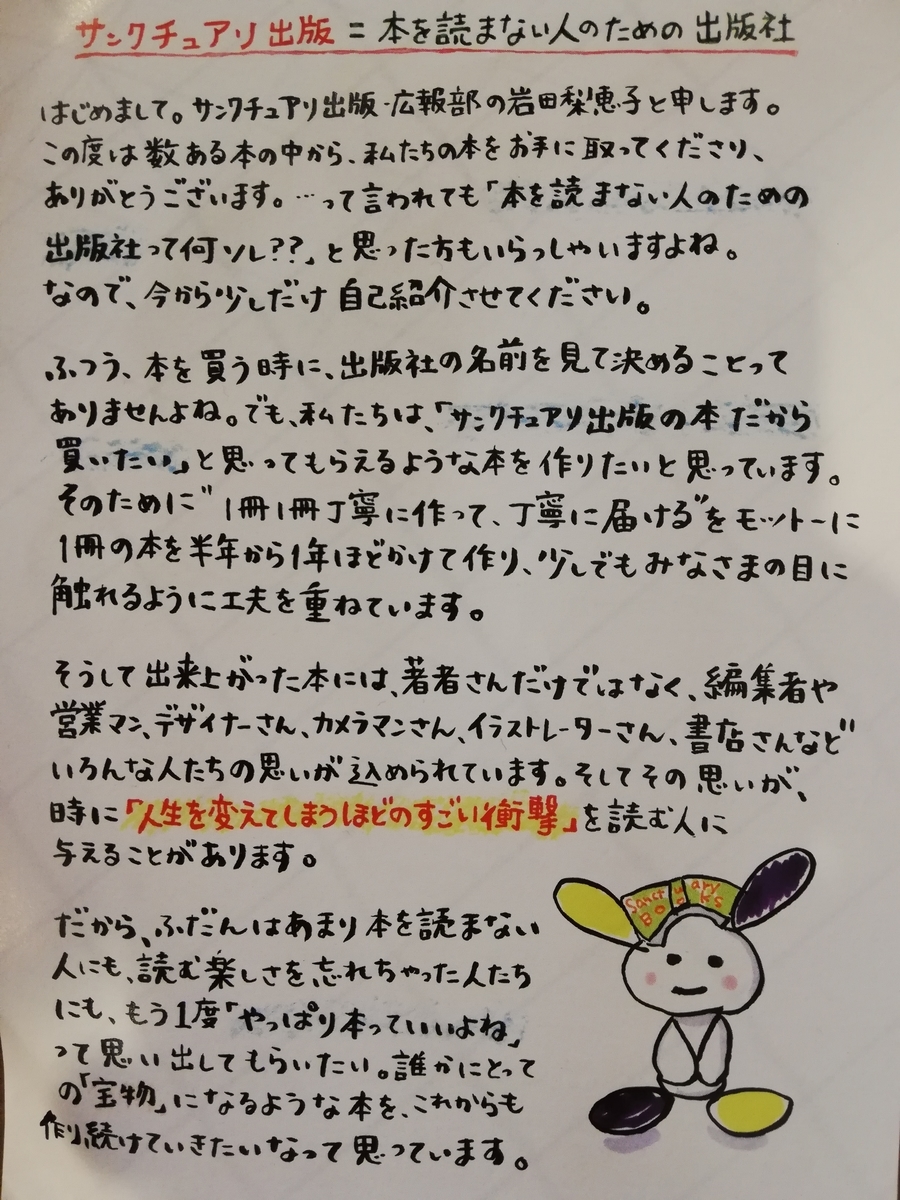 サンクチュアリ出版 = 本を読まない人のための出版社
はじめまして。サンクチュアリ出版・広報部の岩田梨恵子と申します。
この度は数ある本の中から、私たちの本をお手に取ってくださり、
ありがとうございます。…って言われても「本を読まない人のための
出版社って何ソレ??」と思った方もいらっしゃいますよね。
なので、今から少しだけ自己紹介させてください。
ふつう、本を買う時に、出版社の名前を見て決めることって
ありませんよね。でも、私たちは、「サンクチュアリ出版の本だから
買いたい」と思ってもらえるような本を作りたいと思っています。
そのために"1冊1冊丁寧に作って、丁寧に届ける"をモットーに
1冊の本を半年から1年ほどかけて作り、少しでもみなさまの目に
触れるように工夫を重ねています。
そうして出来上がった本には、著者さんだけではなく、編集者や
営業マン、デザイナーさん、カメラマンさん、イラストレーターさん、書店さんなど
いろんな人たちの思いが込められています。そしてその思いが、
時に「人生を変えてしまうほどのすごい衝撃」を読む人に
与えることがあります。
だから、ふだんはあまり本を読まない
人にも、読む楽しさを忘れちゃった人たち
にも、もう1度「やっぱり本っていいよね」
って思い出してもらいたい。誰かにとって
の「宝物」になるような本を、これからも
作り続けていきたいなって思っています。
Sanctuary
Books